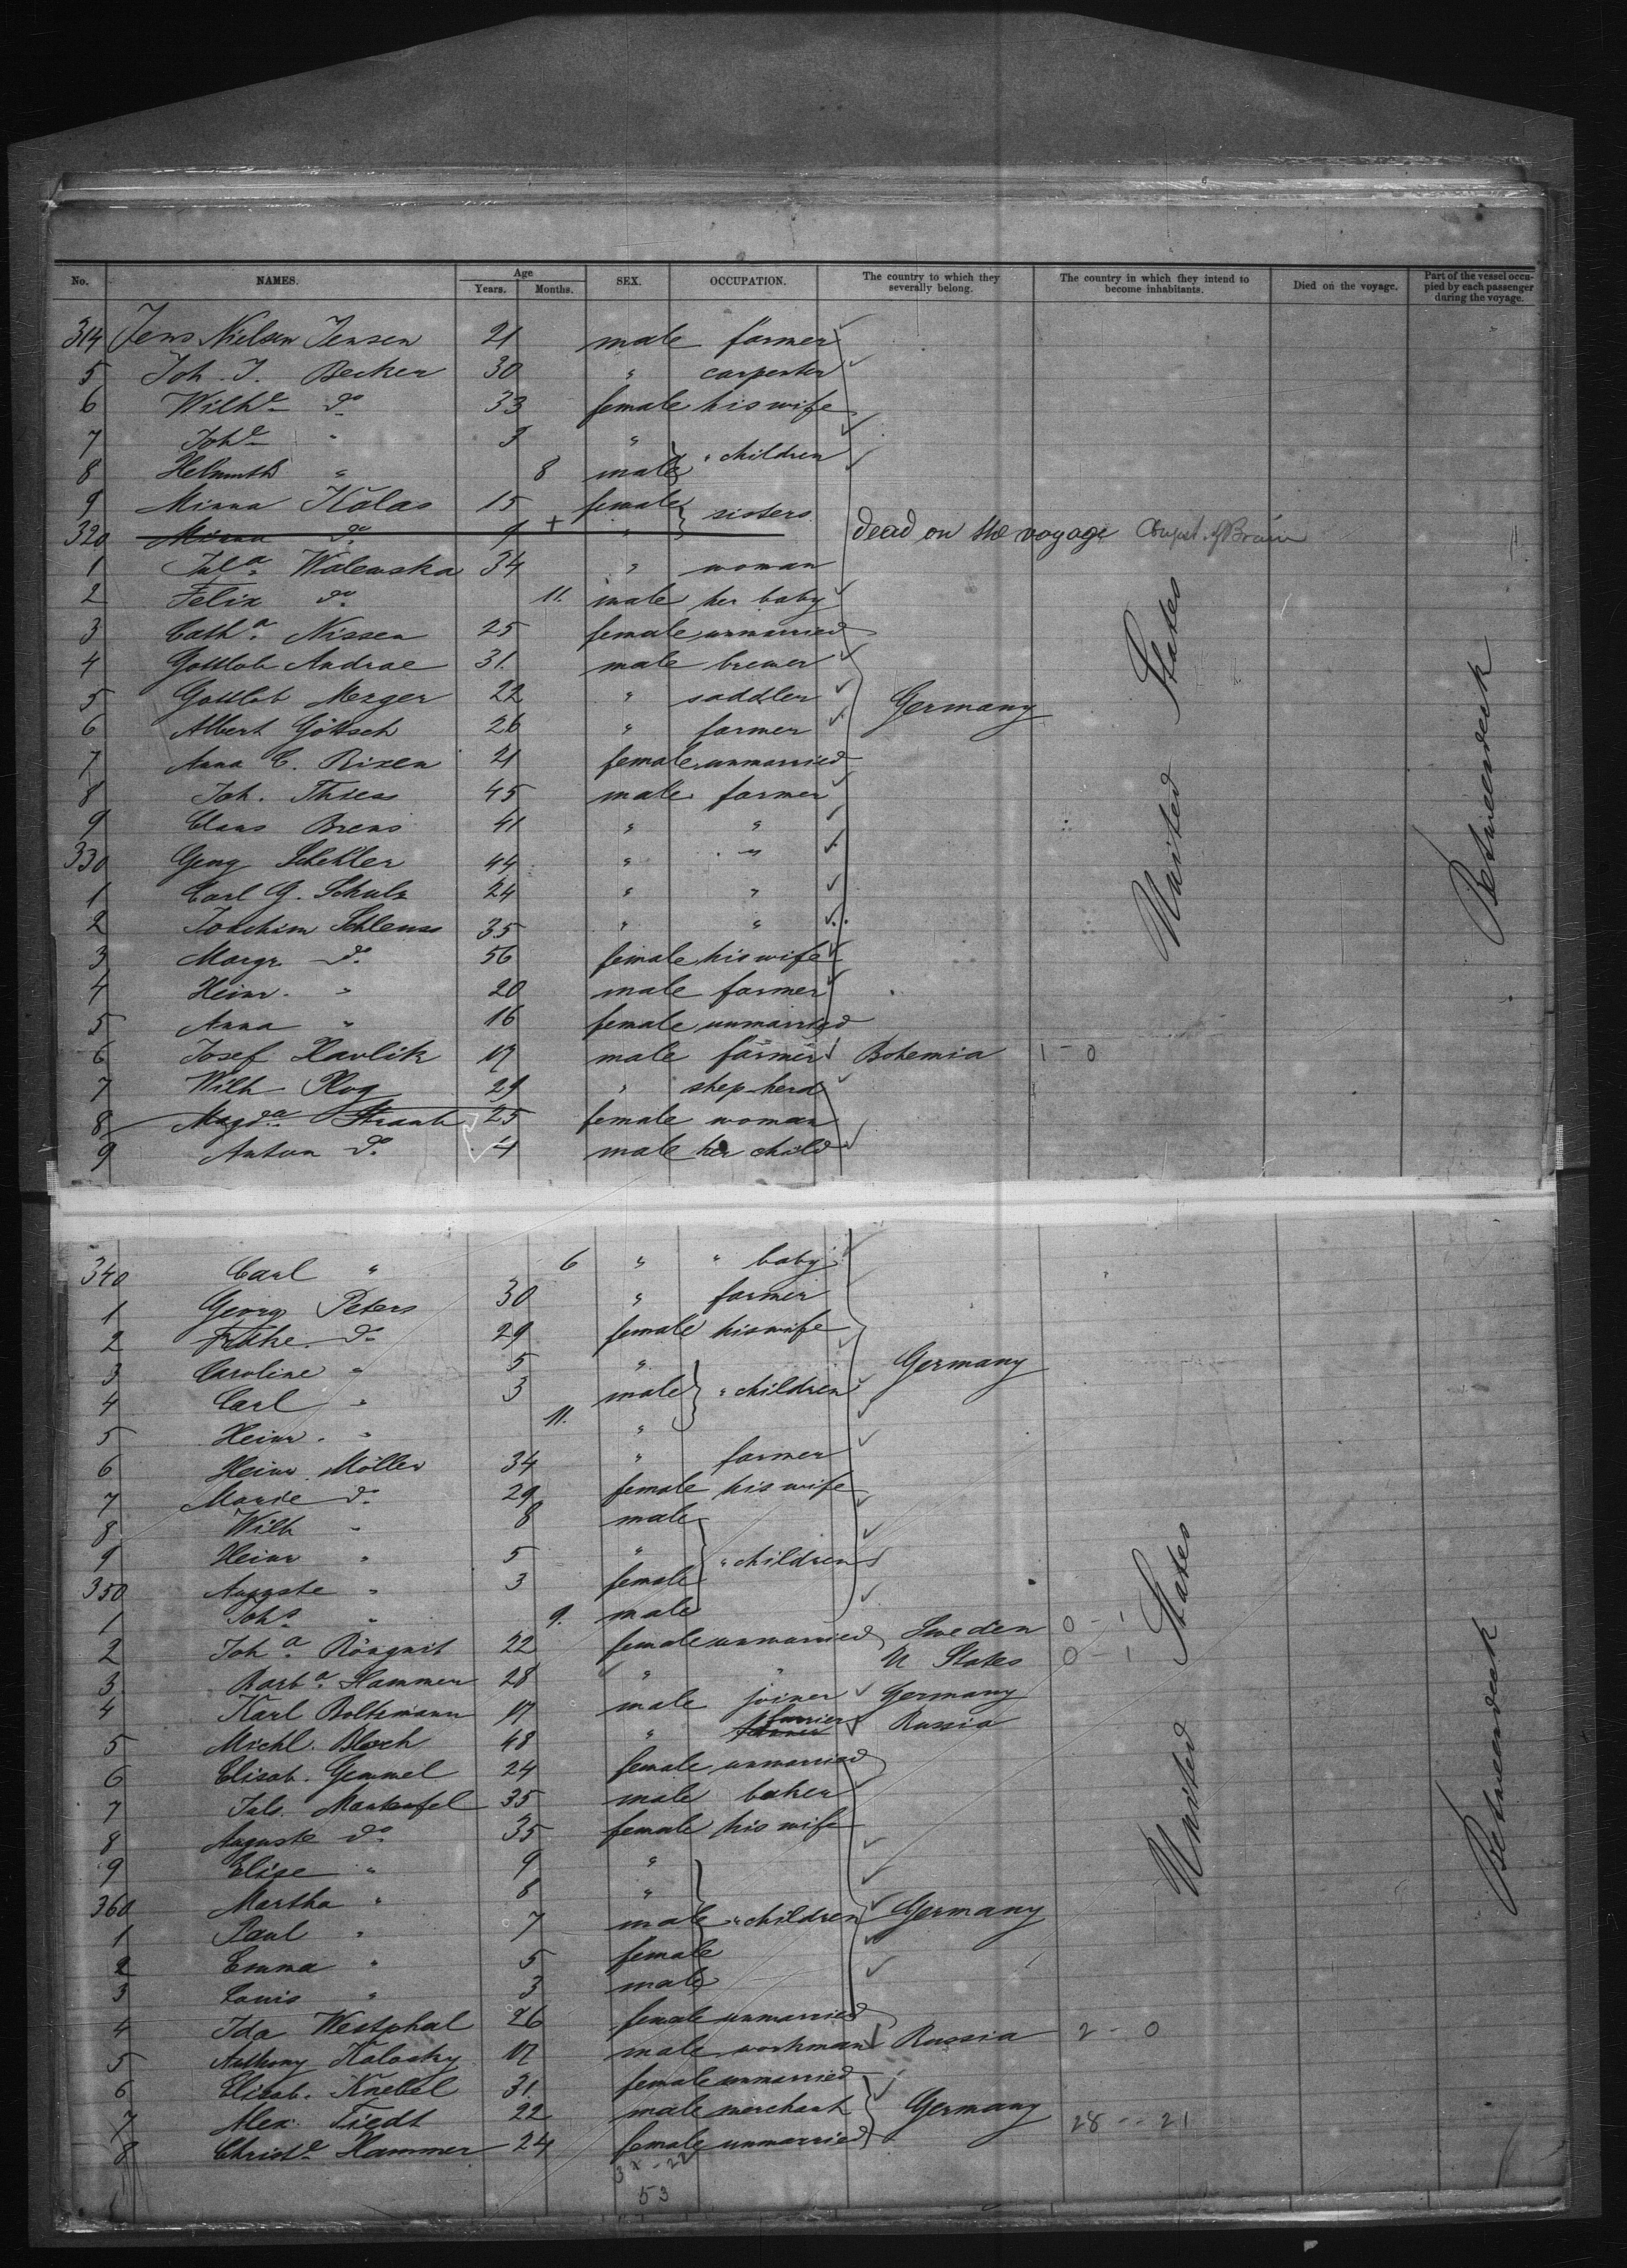 No. NAMES. Age Years. Months. SEX. OCCUPATION. The country to which they severally belong. The country in which they intend to become inhabitants. Died on the voyage. Part of the vessel occupied by each passenger during the voyage.
314 Jens Nielsen Jensen 21 male farmer
5 Joh. J. Becker 30 " carpenter
6 Wilhe do 33 female his wife
7 Johe " 3 "
8 Helmuth " 8 male " children
9 Minna Kolas 15 female sisters
320 Minna do 9 + " dead on the voyage Congest. of Brain
1 Jula Walewska 34 " woman
2 Felix do 11. male her baby
3 Catha. Nissen 25 female unmarried
4 Gottlob Andrae 31. male brewer
5 Gottlob Merger 22 " saddler Germany
6 Albert Göttsch 26 " farmer
7 Anna C. Rixen 21 female unmarried
8 Joh. Thiess 45 male farmer
9 Claus Brens 41 " "
330 Georg Schehler 44 " "
1 Carl G. Schulz 24 " "
2 Joachim Schleuss 35 " "
3 Margr. do 56 female his wife
4 Heinr. " 20 male farmer
5 Anna " 16 female unmarried
6 Josef Havlik 17 male farmer Bohemia 1 - 0
7 Wilh Plog 29 " shep-herd
8 Magda Straub 25 female woman
9 Anton do 4 male her child
United States
Betweendeck
340 Carl " 6 " " baby
1 Georg Peters 30 " farmer
2 do 29 female his wife
3 Caroline " 5 " Germany
4 Carl " 3 male " children
5 Heinr. " 11. "
6 Heinr. Möller 34 " farmer
7 Marie do 29 female his wife
8 Wilh " 8 male
9 Heinr " 5 " " children
350 Auguste " 3 female
1 Johs " 9. male
2 Joha. 22 female unmarried Sweden 0 - 1
3 Barba. Hammer 28 " " U States 0 - 1
4 Karl Boltzmann 17 male joiner Germany
5 Michl. Bloch 48 " furrier Russia
6 Elisab. Gemmel 24 female unmarried
7 Juls. Manteufel 35 male baker
8 Auguste do 35 female his wife
9 Elise " 9 "
360 Martha " 8 "
1 Paul " 7 male " children Germany
2 Emma " 5 female
3 Louis " 3 male
4 Ida Westphal 26 female unmarried
5 Anthony Kalosky 17 male workman Russia 2 - 0
6 Elisab. Knebel 31. female unmarried
7 Alex. Tiedt 22 male merchant Germany
8 Christe Hammer 24 female unmarried 28 - 21
United States
Betweendeck
53